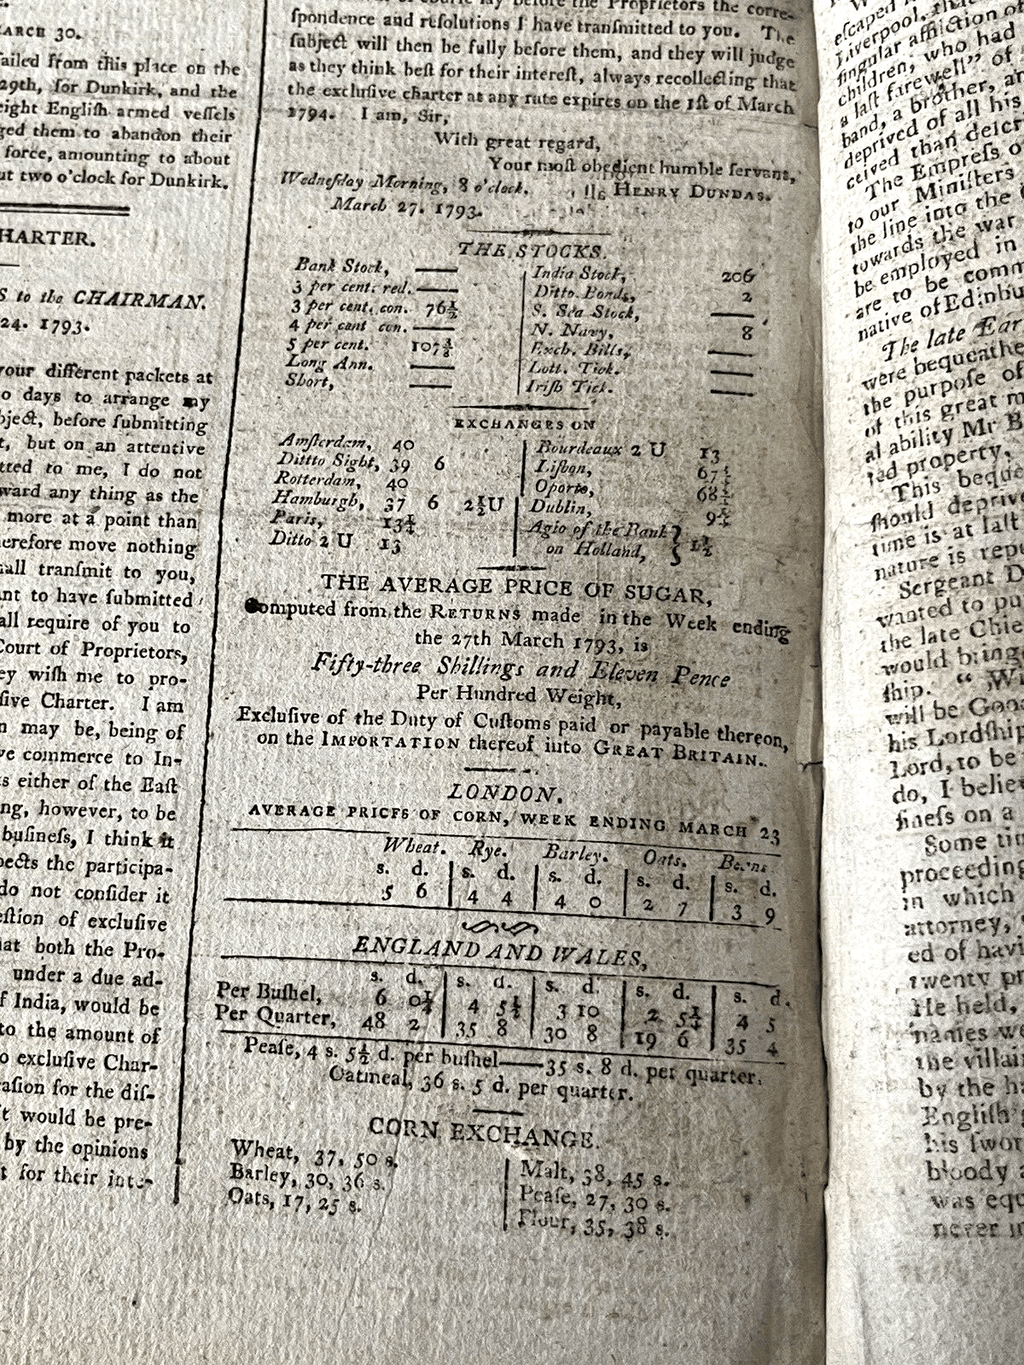 MARCH 30.
ailed from this place on the
29th, for Dunkirk, and the
eight Engliſh armed veſſels
ged them to abandon their
force, amounting to about
ut two o'clock for Dunkirk.
HARTER.
S to the CHAIRMAN.
24. 1793.
your different packets at
o days to arrange my
bject, before ſubmitting
t, but on an attentive
tted to me, I do not
ward any thing as the
more at a point than
herefore move nothing
hall tranſmit to you,
ant to have ſubmitted
all require of you to
Court of Proprietors,
ey wiſh me to pro-
ſive Charter. I am
n may be, being of
ve commerce to In-
s either of the Eaſt
ng, however, to be
buſineſs, I think it
pects the participa-
do not conſider it
eſtion of excluſive
hat both the Pro-
under a due ad-
f India, would be
to the amount of
o excluſive Char-
caſion for the diſ-
t would be pre-
by the opinions
t for their inte-
lay before the Proprietors the corre-
ſpondence and reſolutions I have tranſmitted to you. The
ſubject will then be fully before them, and they will judge
as they think beſt for their intereſt, always recollecting that
the excluſive charter at any rate expires on the 1ſt of March
1794. I am, Sir,
With great regard,
Your moſt obedient humble ſervant,
Wedneſday Morning, 8 o'clock. HENRY DUNDAS.
March 27. 1793.
THE STOCKS.
Bank Stock, ——
3 per cent. red. ——
3 per cent. con. 76½
4 per cent con. ——
5 per cent. 107⅜
Long Ann. ——
Short, ——
India Stock, 206
Ditto Bonds, 2
S. Sea Stock, ——
N. Navy, 8
Exch. Bills, ——
Lott. Tick. ——
Iriſh Tick. ——
EXCHANGES ON
Amſterdam, 40
Dittto Sight, 39 6
Rotterdam, 40
Hamburgh, 37 6 2½U
Paris, 13¼
Ditto 2 U 13
Bourdeaux 2 U 13
Liſbon, 67
Oporto, 68½
Dublin, 9
Agio of the Bank
on Holland, } 1½
THE AVERAGE PRICE OF SUGAR,
Computed from the RETURNS made in the Week ending
the 27th March 1793, is
Fifty-three Shillings and Eleven Pence
Per Hundred Weight,
Excluſive of the Duty of Cuſtoms paid or payable thereon,
on the IMPORTATION thereof into GREAT BRITAIN.
LONDON.
AVERAGE PRICES OF CORN, WEEK ENDING MARCH 23
Wheat. Rye. Barley. Oats. Beans
s. d. s. d. s. d. s. d. s. d.
5 6 4 4 4 0 2 7 3 9
ENGLAND AND WALES,
s. d. s. d. s. d. s. d. s. d.
Per Buſhel, 6 0¼ 4 5½ 3 10 2 5¼ 4 5
Per Quarter, 48 2 35 8 30 8 19 6 35 4
Peaſe, 4 s. 5½ d. per buſhel——35 s. 8 d. per quarter.
Oatmeal, 36 s. 5 d. per quarter.
CORN EXCHANGE.
Wheat, 37, 50 s.
Barley, 30, 36 s.
Oats, 17, 25 s.
Malt, 38, 45 s.
Peaſe, 27, 30 s.
Flour, 35, 38 s.
eſcaped
Liverpool, that
ſingular affliction of
children, who had
a laſt farewell" of
band, a brother, an
deprived of all his
ceived than deſcr
The Empreſs o
to our Miniſters
the line into the
towards the war
be employed in
are to be comm
native of Edinbu
The late Ear
were bequeathe
the purpoſe of
of this great m
al ability Mr B
ted property,
This beque
ſhould deprive
time is at laſt
nature is repe
Sergeant D
wanted to pu
the late Chie
would bring
ſhip. " Wi
will be Good
his Lordſhip
Lord, to be
do, I believ
fineſs on a
Some tim
proceeding
in which
attorney,
ed of havi
twenty pr
He held,
names we
the villai
by the h
Engliſh
his ſwor
bloody a
was equ
never in